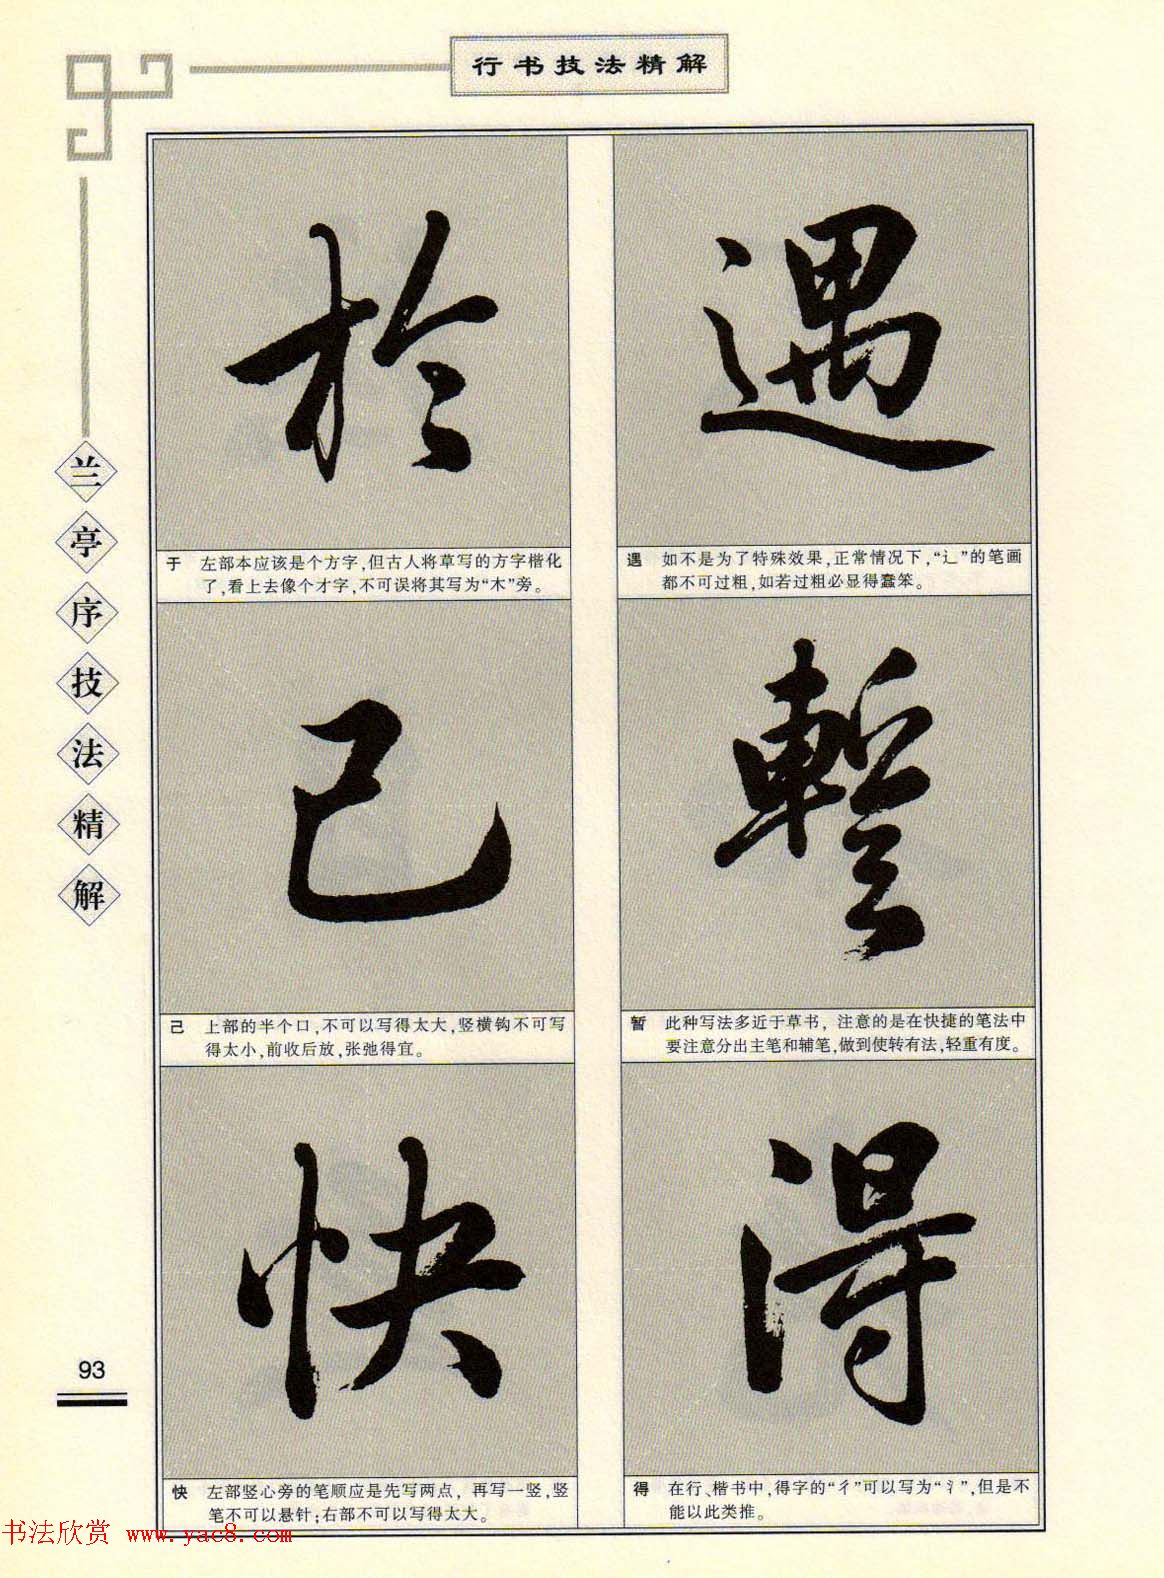 行书技法精解
兰亭序技法精解
遇
遇 如不是为了特殊效果，正常情况下，“辶”的笔画
都不可过粗，如若过粗必显得蠢笨。
蹔
暂 此种写法多近于草书，注意的是在快捷的笔法中
要注意分出主笔和辅笔，做到使转有法，轻重有度。
得
得 在行、楷书中，得字的“彳”可以写为“氵”，但是不
能以此类推。
於
于 左部本应该是个方字，但古人将草写的方字楷化
了，看上去像个才字，不可误将其写为“木”旁。
己
己 上部的半个口，不可以写得太大，竖横钩不可写
得太小，前收后放，张弛得宜。
快
快 左部竖心旁的笔顺应是先写两点，再写一竖，竖
笔不可以悬针；右部不可以写得太大。
93
书法欣赏 www.yac8.com